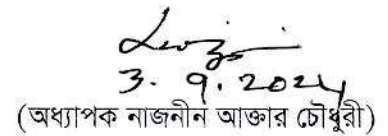 3.9.2024
(অধ্যাপক নাজনীন আক্তার চৌধুরী)